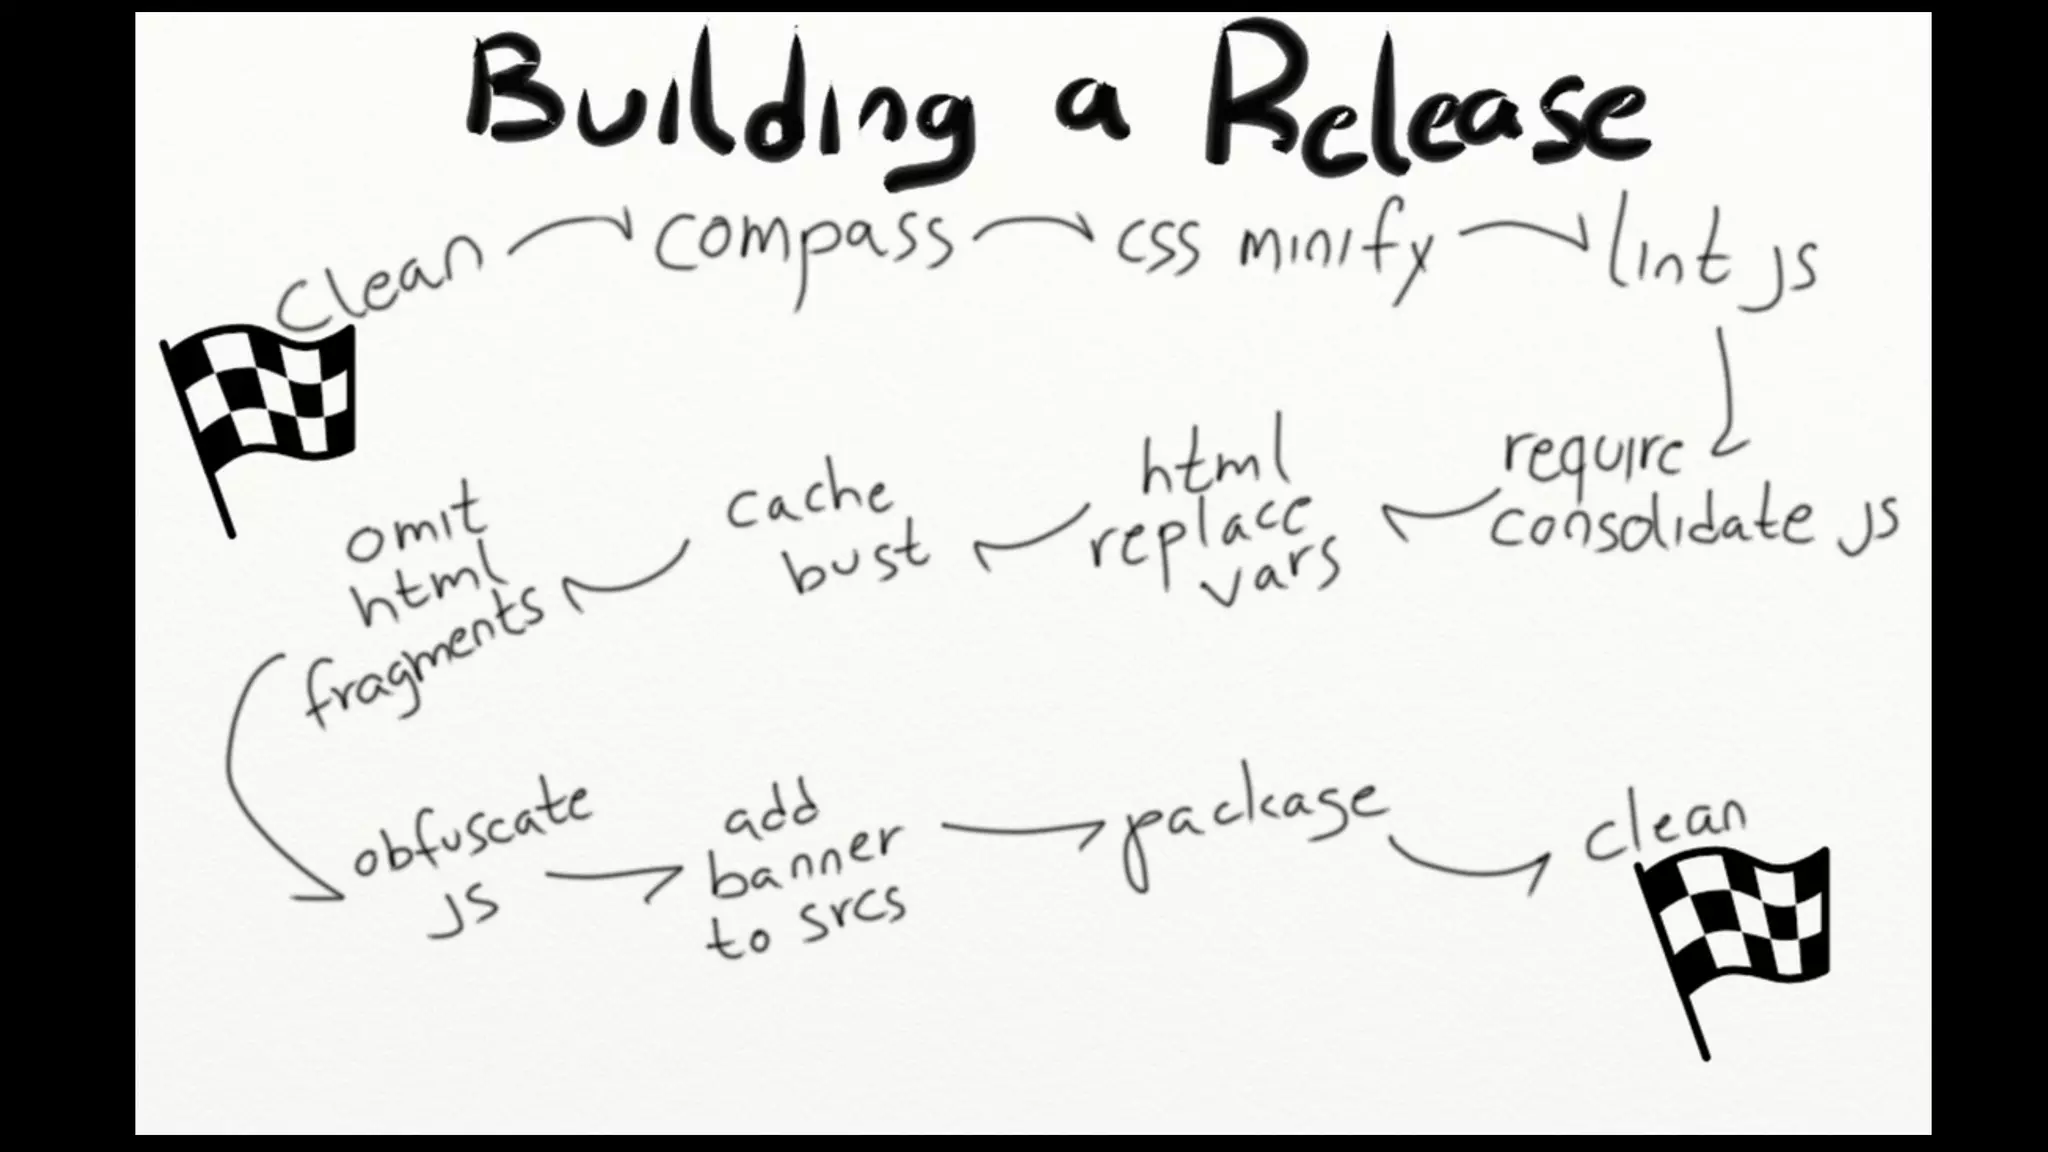 Building a Release
clean compass css minify lint js
require
consolidate js
html
replace
vars
cache
bust
omit
html
fragments
obfuscate
js
add
banner
to srcs
package
clean